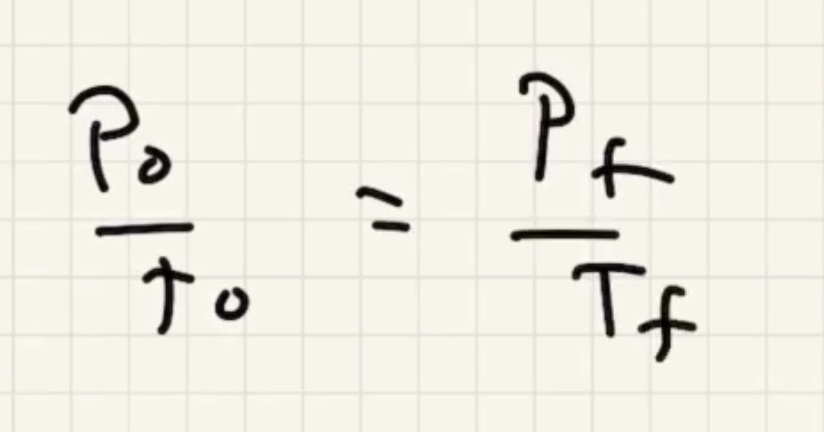 P₀/T₀ = P_f/T_f